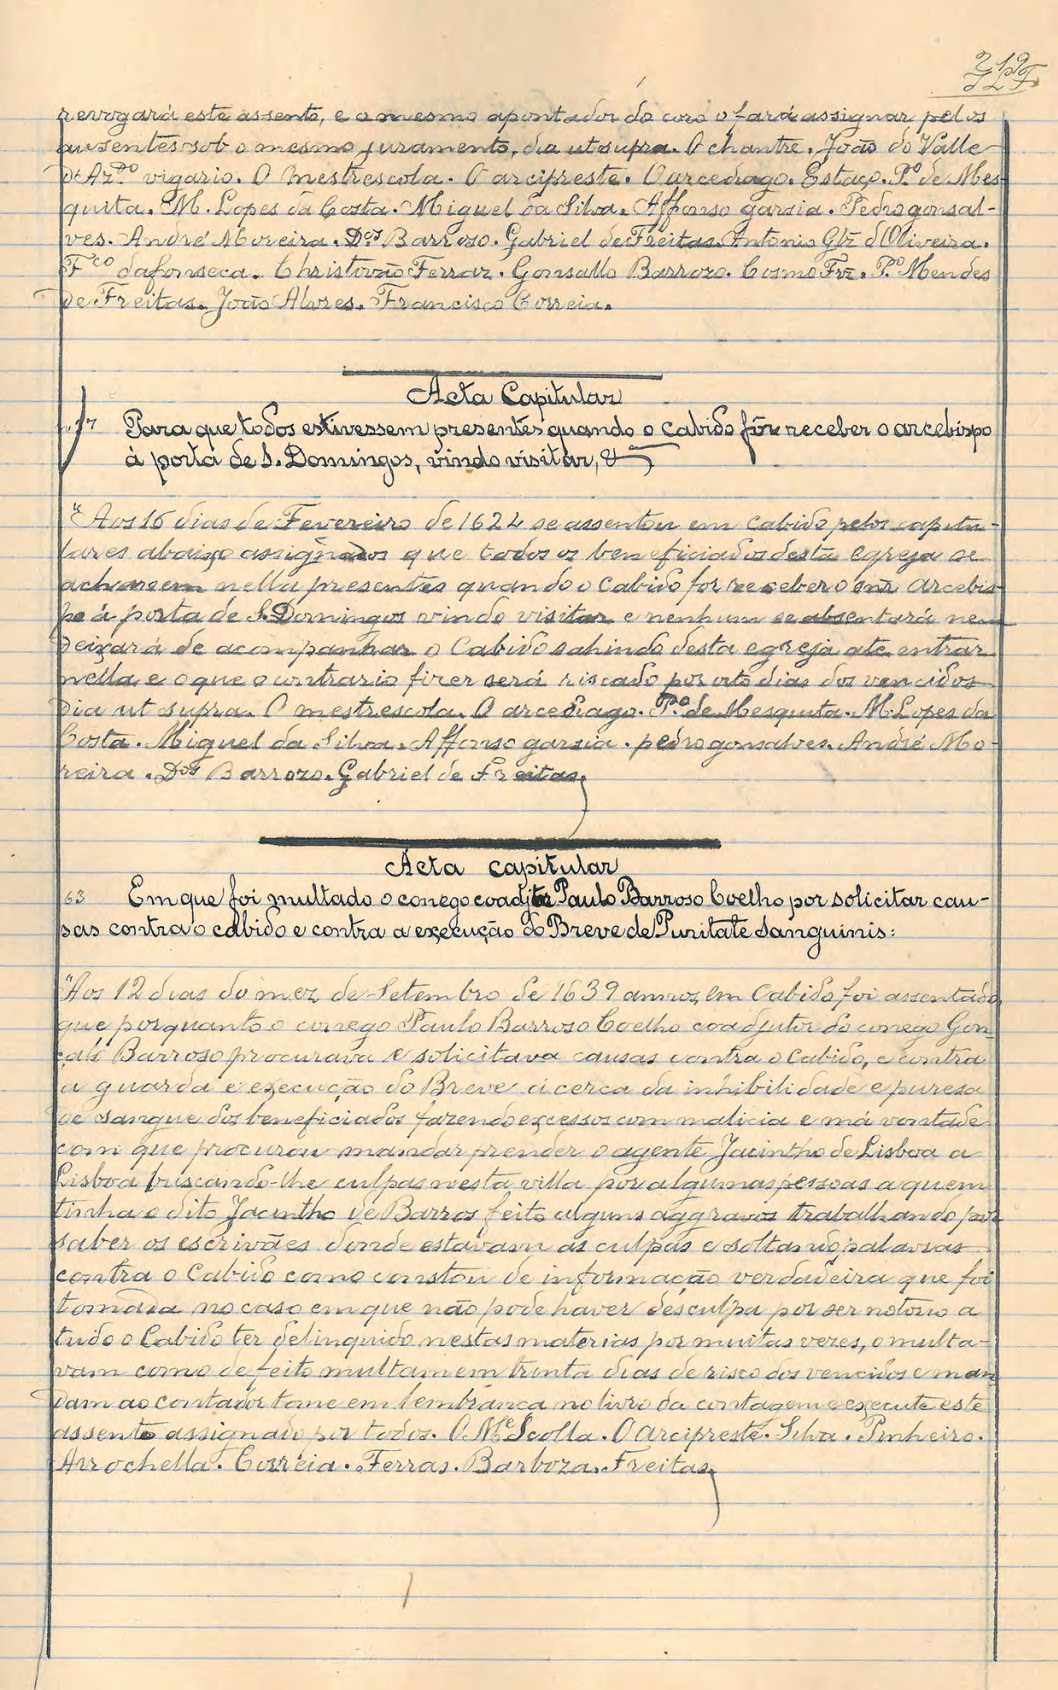 219
revogará este assento, e o mesmo apontador do coro o fará assignar pelos
ausentes sob o mesmo juramento, dia ut supra. O chantre. João do Valle
vigario. O mestrescola. O arcipreste. O arcediago. Estaço. P.º de Mes-
quita. M. Lopes da Costa. Miguel da Silva. Affonso garsia. Pedro gonsal-
ves. André Moreira. D.os Barroso. Gabriel de Freitas. Antonio Glz d'Oliveira.
F.co da fonseca. Christovão Ferraz. Gonsallo Barrozo. Cosmo Frz. P.º Mendes
de Freitas. João Alvres. Francisco Correia.
Acta Capitular
Para que todos estivessem presentes quando o cabido fôr receber o arcebispo
à porta de S. Domingos, vindo visitar, &
"Aos 16 dias de Fevereiro de 1624 se assentou em cabido pelos capitu-
lares abaixo assignados que todos os beneficiados desta egreja se
achassem nella presentes quando o Cabido for receber o snr arcebis-
po á porta de S. Domingos vindo visitar e nenhum se absentará nem
deixará de acompanhar o Cabido sahindo desta egreja ate entrar
nella e o que o contrario fizer será riscado por oito dias dos vencidos
dia ut supra. O mestrescola. O arcediago. P.º de Mesquita. M. Lopes da
Costa. Miguel da Silva. Affonso garsia. pedro gonsalves. André Mo-
reira. D.os Barrozo. Gabriel de Freitas.
Acta capitular
63 Em que foi multado o conego coadjtor Paulo Barroso Coelho por solicitar cau-
sas contra o cabido e contra a execução do Breve de Puritate Sanguinis:
"Aos 12 dias do mez de Setembro de 1639 annos, em Cabido foi assentado
que porquanto o conego Paulo Barroso Coelho coadjutor do conego Gon-
çalo Barroso procurava e solicitava causas contra o Cabido, e contra
a guarda e execução do Breve á cerca da inhibilidade e puresa
de sangue dos beneficiados fazendo excessos com malicia e má vontade
com que procurou mandar prender o agente Jacintho de Lisboa a
Lisboa buscando-lhe culpas nesta villa por algumas pessoas a quem
tinha o dito Jacintho de Barros feito alguns aggravos trabalhando por
saber os escrivães donde estavam as culpas e soltando palavras
contra o Cabido como constou de informação verdadeira que foi
tomada no caso em que não pode haver desculpa por ser notorio a
tudo o Cabido ter delinquido nestas materias por muitas vezes, o multa-
vam como de feito multam em trinta dias de risco dos vencidos e man-
dam ao contador tome em lembrança no livro da contagem e execute este
assento assignado por todos. O M.e Scolla. O arcipreste. Silva. Pinheiro.
Arrochella. Correia. Ferras. Barboza. Freitas.